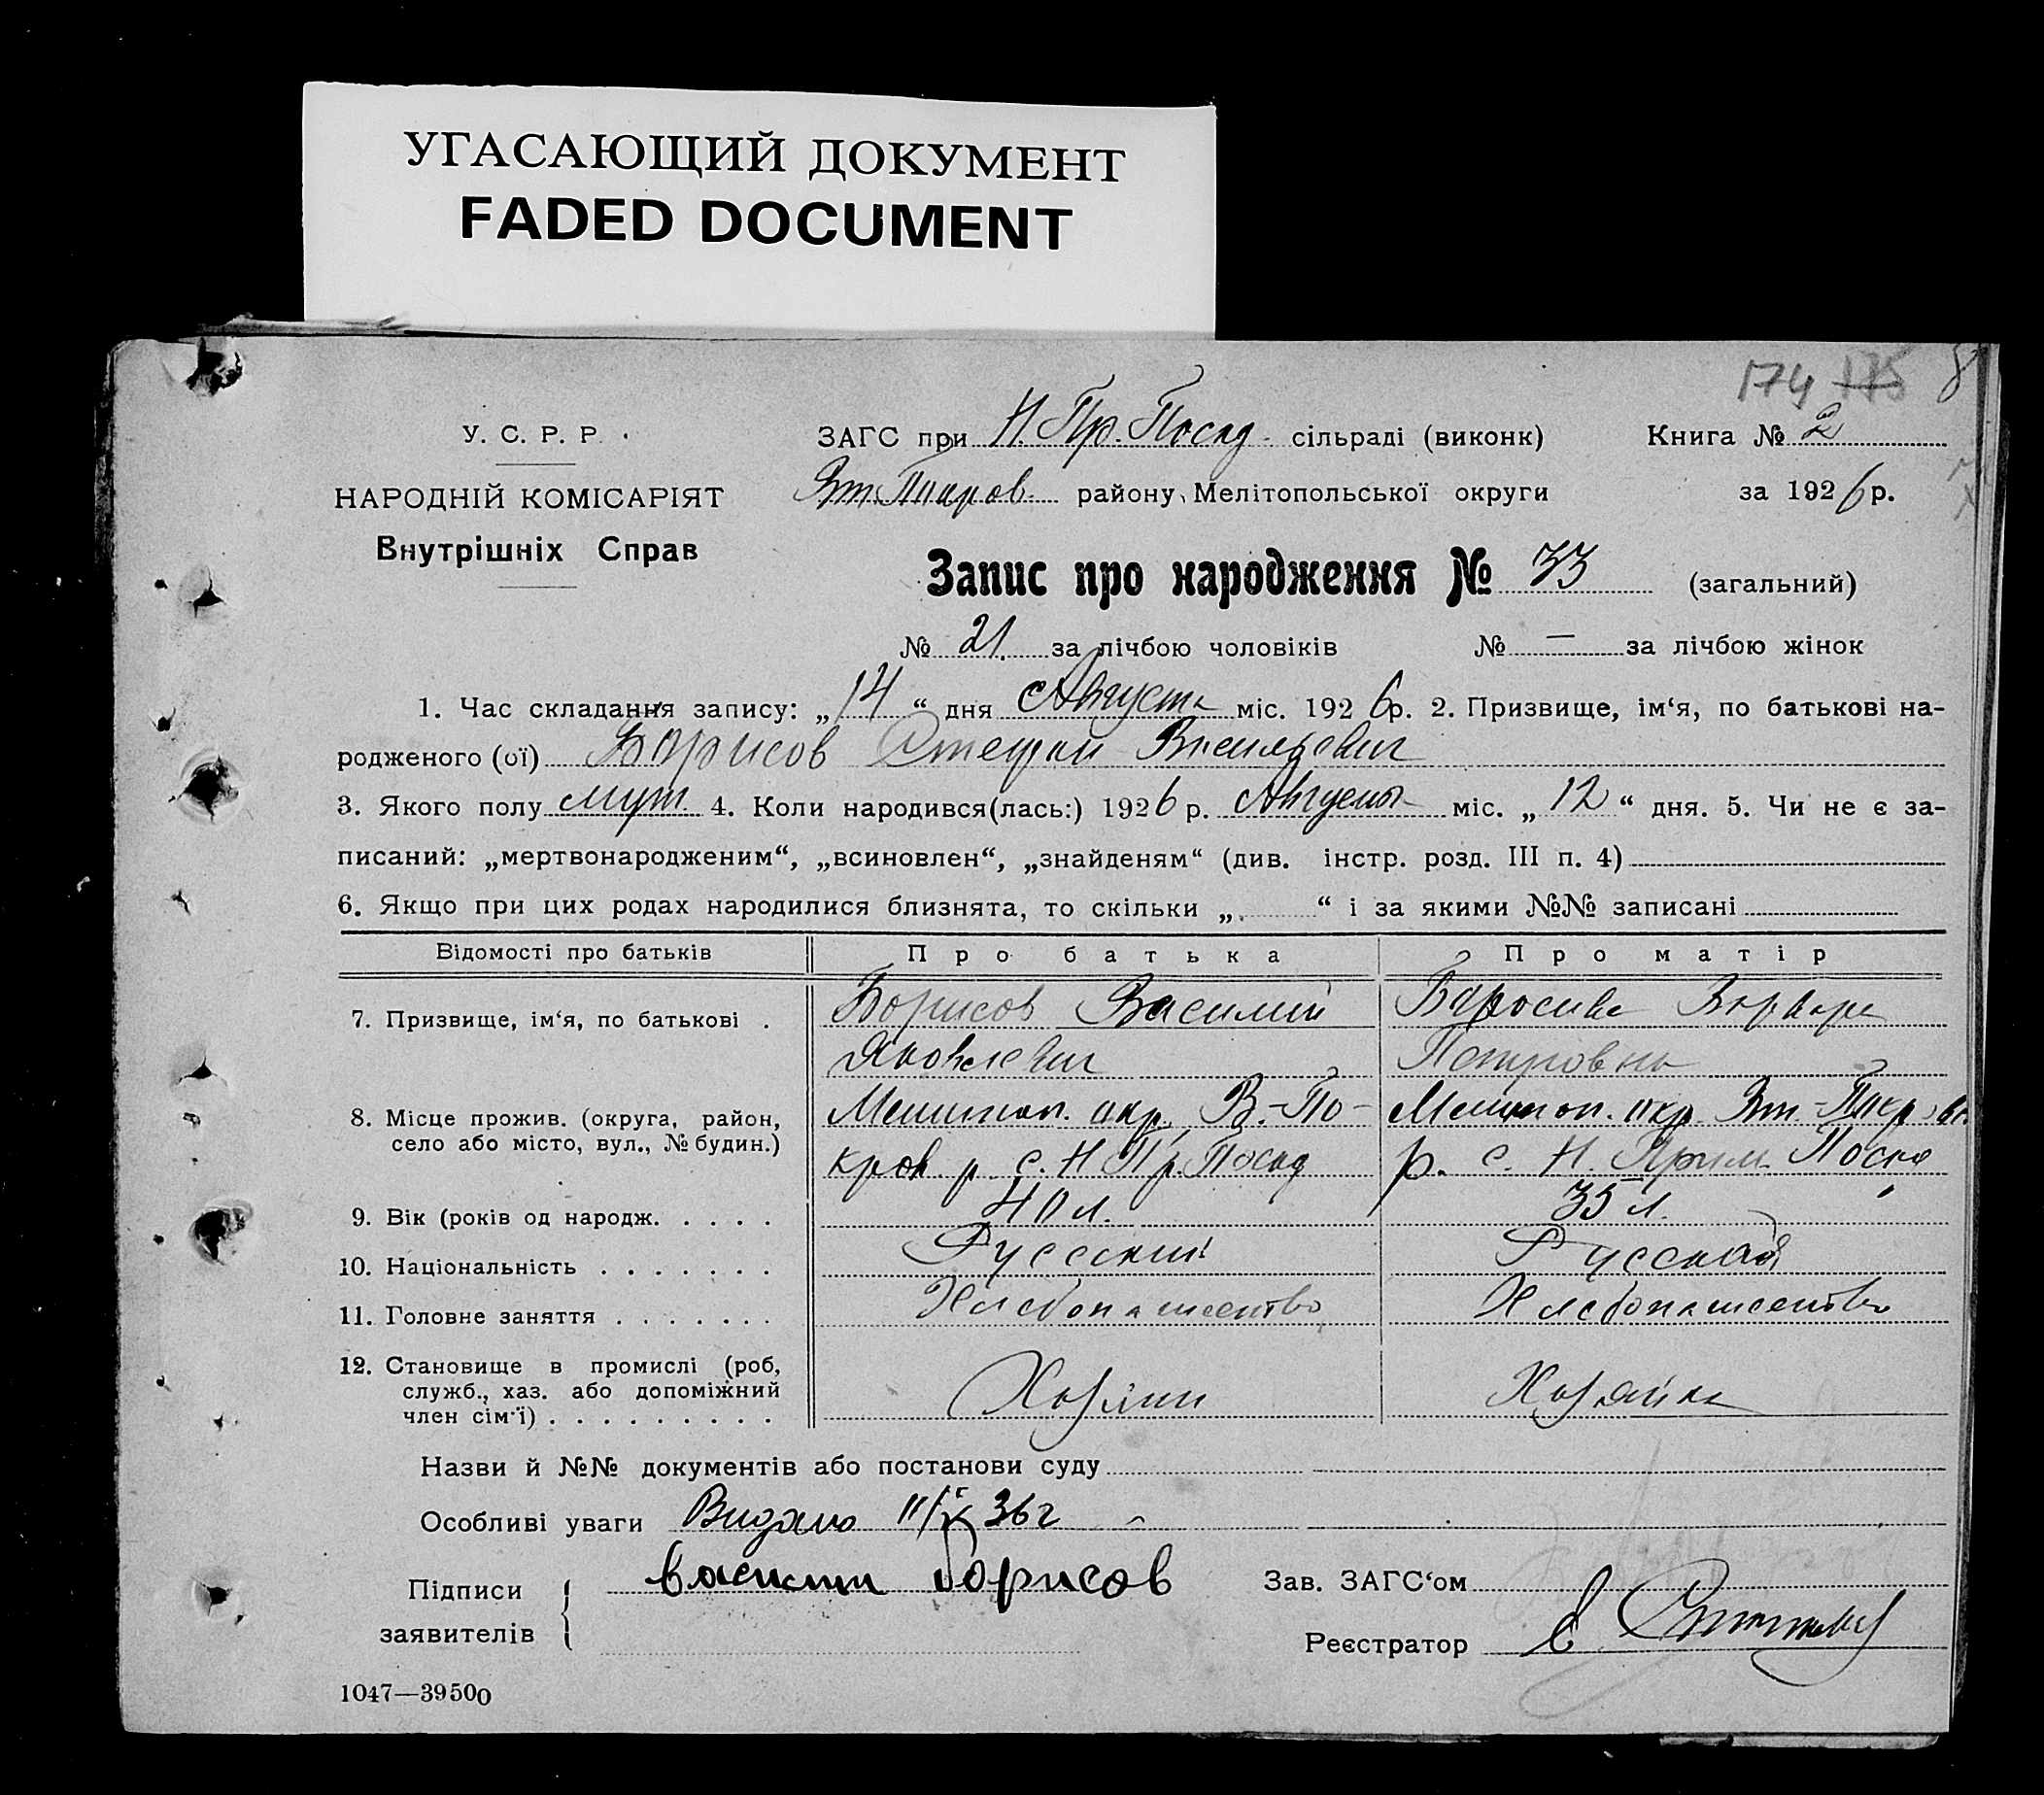 УГАСАЮЩИЙ ДОКУМЕНТ
FADED DOCUMENT
174 175 8
У. С. Р. Р.
НАРОДНІЙ КОМІСАРІЯТ
Внутрішніх Справ
ЗАГС при Н. Пр. Посад сільраді (виконк) Книга № 2
Вт. Покров. району, Мелітопольської округи за 1926 р.
Запис про народження № 33 (загальний)
№ 21. за лічбою чоловіків № — за лічбою жінок
1. Час складання запису: „14“ дня Августа міс. 1926 р. 2. Призвище, ім‘я, по батькові на-
родженого (ої) Борисов Стефан Васильевич
3. Якого полу муж. 4. Коли народився(лась:) 1926 р. Августа міс. „12“ дня. 5. Чи не є за-
писаний: „мертвонародженим“, „всиновлен“, „знайденям“ (див. інстр. розд. III п. 4)
6. Якщо при цих родах народилися близнята, то скільки „ “ і за якими №№ записані
Відомості про батьків Про батька Про матір
7. Призвище, ім‘я, по батькові . Борисов Василий Борисова Варвара
Яковлевич Петровна
8. Місце прожив. (округа, район,
село або місто, вул., № будин.)
Мелитоп. окр. В.-По-
кров р. с. Н Пр. Посад
Мелитоп. окр. Вт.-Покров.
р. с. Н. Прим. Посад
9. Вік (років од народж. . . . . 40 л. 35 л.
10. Національність . . . . . . . Русский Русская
11. Головне заняття . . . . . . . Хлебопашество Хлебопашество
12. Становище в промислі (роб,
служб., хаз. або допоміжний
член сім‘ї) . . . . . . . . . Хозяин Хозяйка
Назви й №№ документів або постанови суду
Особливі уваги Видано 36 г
Підписи
заявителів
василий борисов
Зав. ЗАГС‘ом
Реєстратор
1047—39500